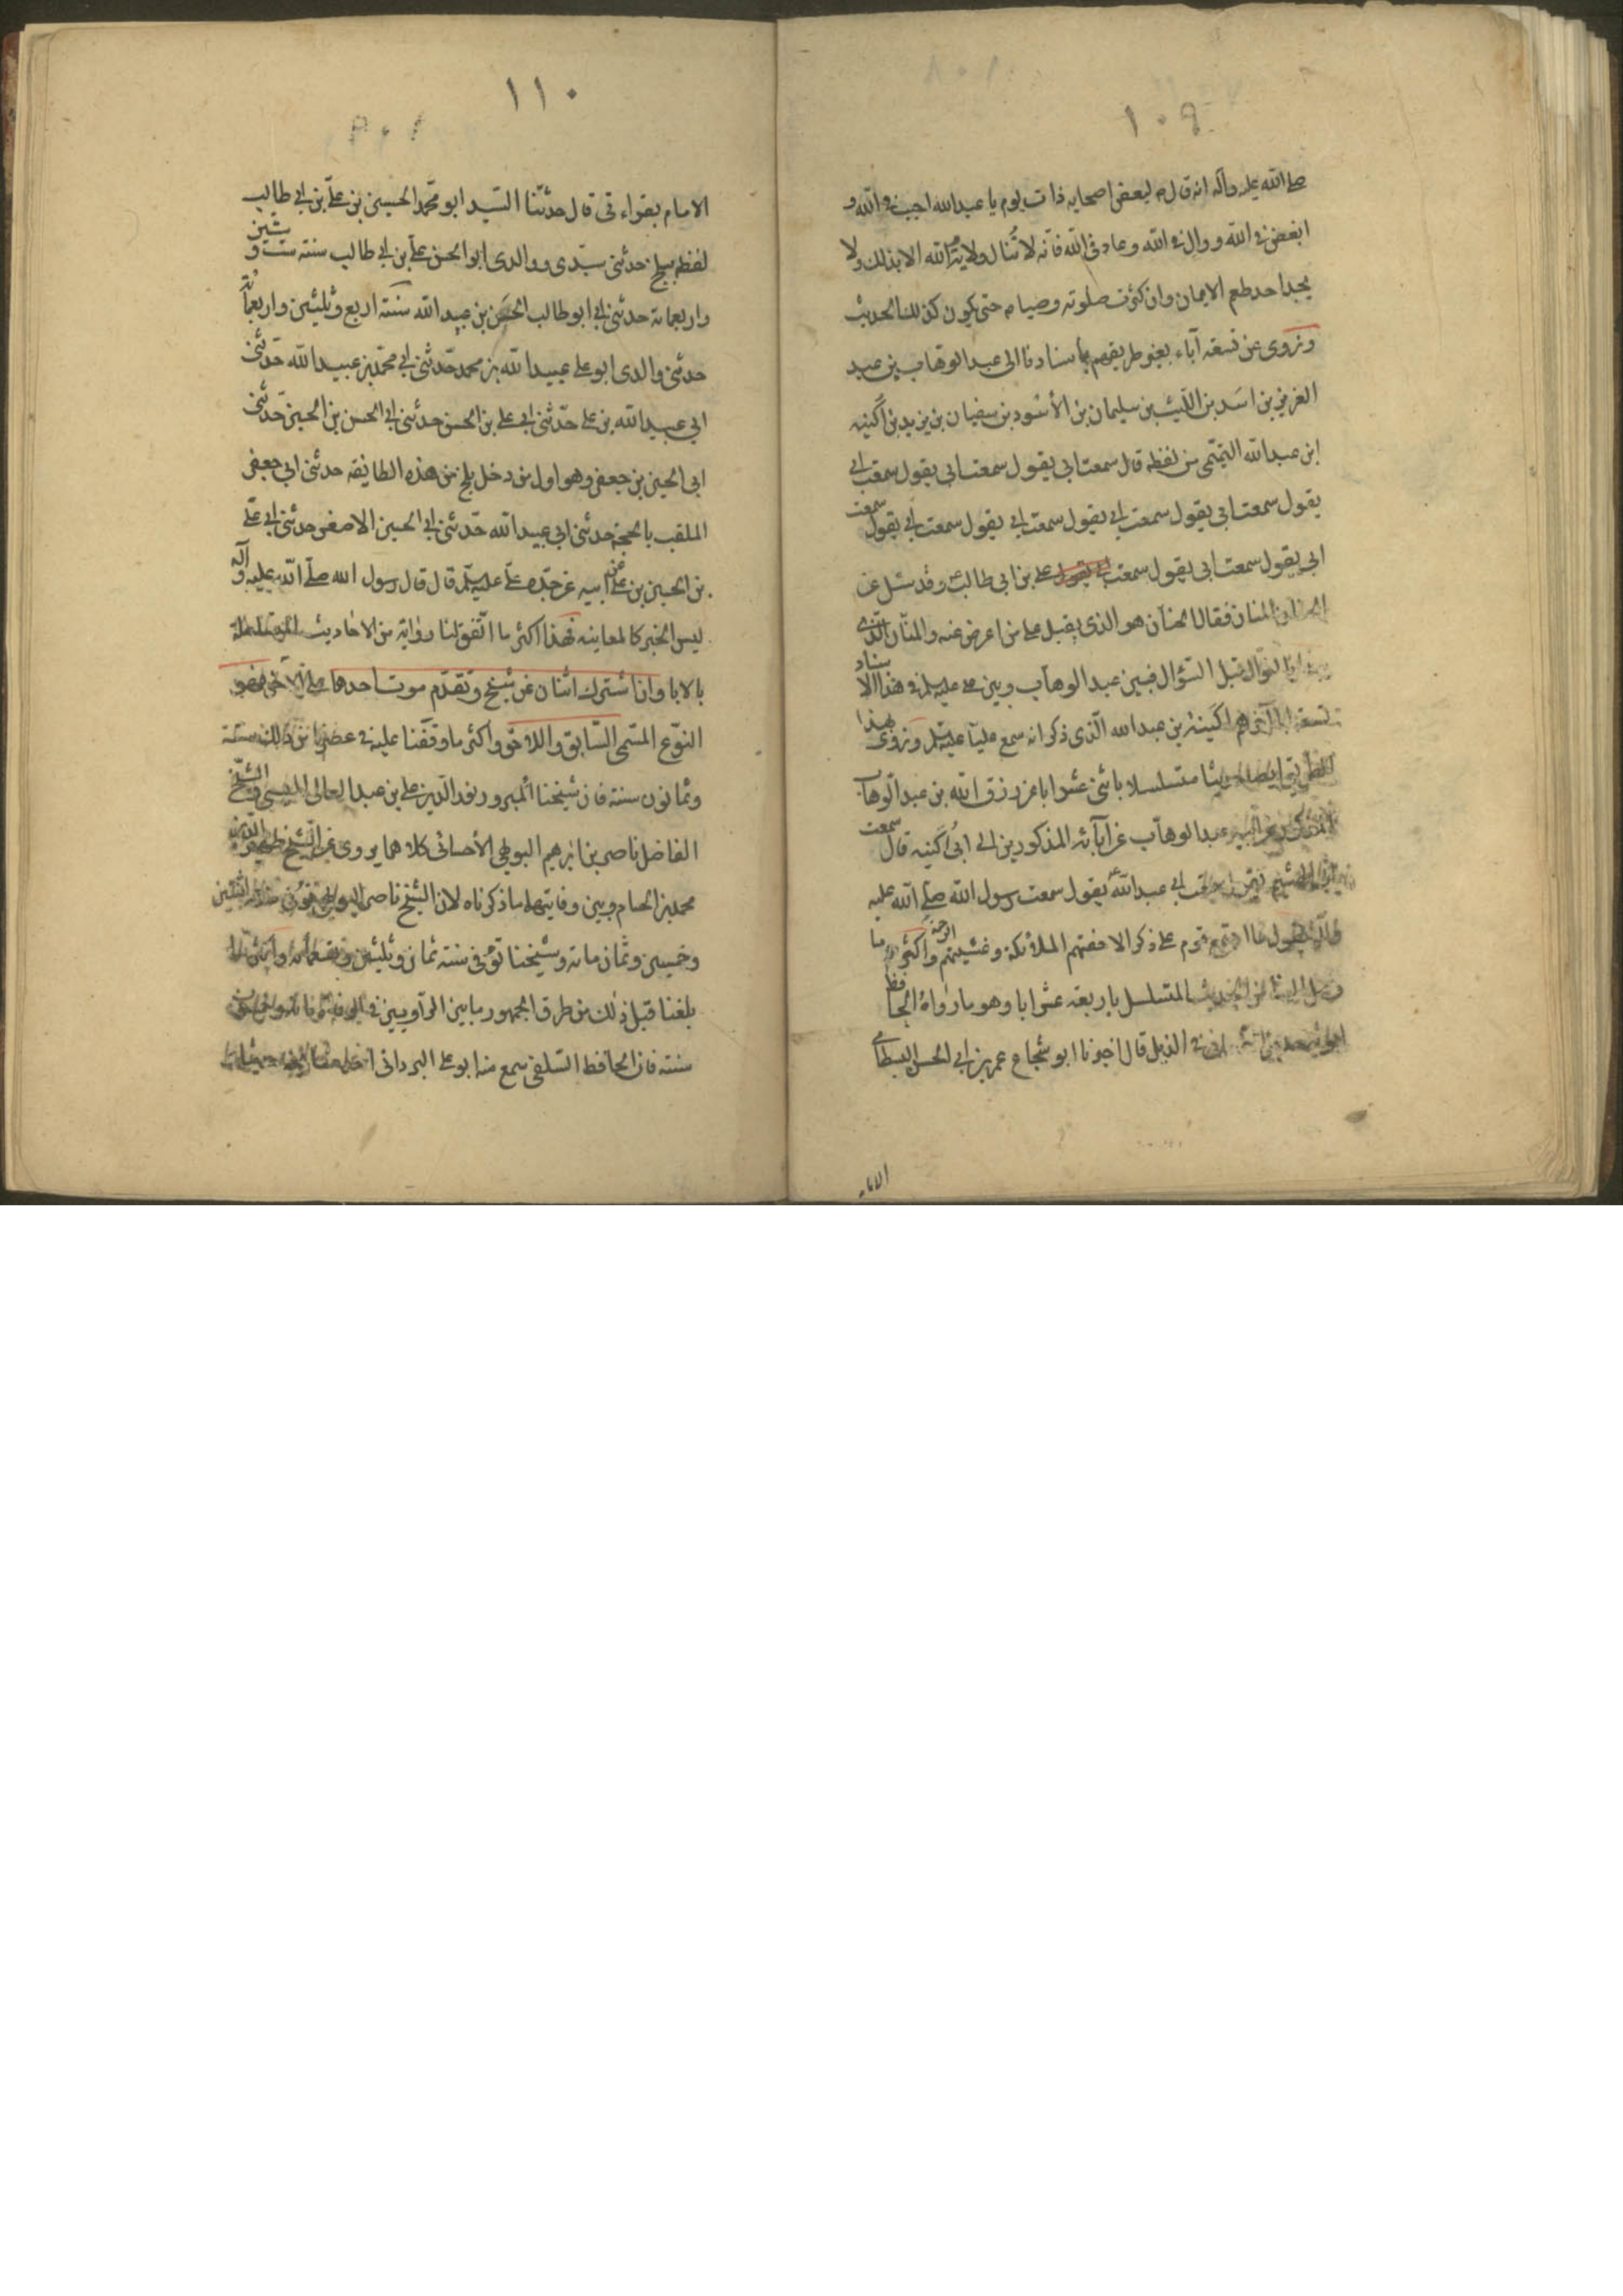 ١٠٩
صلى الله عليه وآله انه قال لبعض اصحابه ذات يوم يا عبد الله احبب في الله و
ابغض في الله ووال في الله وعاد في الله فانه لا تنال ولاية الله الا بذلك ولا
يجد احد طعم الايمان وان كثرت صلوته وصيامه حتى يكون كذلك الحديث
ونروى عن تسعة آباء بغير طريقهم باسنادنا الى عبد الوهاب بن عبد
العزيز بن اسد بن الليث بن سليمان بن الأسود بن سفيان بن يزيد بن اكينه
ابن عبد الله التميمى من لفظه قال سمعت ابي يقول سمعت ابي يقول سمعت ابي
يقول سمعت ابي يقول سمعت ابي يقول سمعت ابي يقول سمعت ابي يقول سمعت
ابي يقول سمعت ابي يقول سمعت علي بن ابي طالب وقد سئل عن
الحنان المنان فقال الحنان هو الذي يقبل على من اعرض عنه والمنان الذى
بالنوال قبل السؤال فبين عبد الوهاب وبين علي عليه السلم في هذا الاسناد
تسعة ابا آخرهم اكينة بن عبد الله الذى ذكر انه سمع عليا عليه السلم ونروى بهذا
الطريق ايضا حديثا متسلسلا باثنى عشر ابا عن رزق الله بن عبد الوهاب
عن ابيه عبد الوهاب عن آبائه المذكورين الى ابي اكينه قال سمعت
ابي عبد الله يقول سمعت رسول الله صلى الله عليه
وآله يقول ما اجتمع قوم على ذكر الا حفتهم الملائكة وغشيتهم الرحمة واكثر ما
وصل الينا من الحديث المتسلسل باربعة عشر ابا وهو ما رواه الحافظ
في الذيل قال اخبرنا ابو شجاع عمر بن ابي الحسن البسطامى
الامام
١١٠
الامام بقراءتى قال حدثنا السيد ابو محمد الحسين بن علي بن ابي طالب
لفظه ببلخ حدثنى سيدى ووالدى ابو الحسن علي بن ابي طالب سنة ست وستين
واربعمائة حدثنى ابي ابو طالب الحسن بن عبيد الله سنة اربع وثلثين واربعمائة
حدثنى والدى ابو علي عبيد الله بن محمد حدثنى ابي محمد بن عبيد الله حدثنى
ابي عبيد الله بن علي حدثنى ابي علي بن الحسن حدثنى ابي الحسن بن الحسين حدثنى
ابى الحسين بن جعفر وهو اول من دخل بلخ من هذه الطايفه حدثنى ابي جعفر
الملقب بالحجة حدثنى ابي عبيد الله حدثنى ابي الحسين الاصغر حدثنى ابي علي
بن الحسين بن علي عن ابيه عن جده علي عليه السلم قال قال رسول الله صلى الله عليه وآله
ليس الخبر كالمعاينه فهذا اكثر ما اتفق لنا روايته من الاحاديث المسلسلة
بالابا وان اشترك اثنان عن شيخ وتقدم موت احدهما على الآخر فهو
النوع المسمى السابق واللاحق واكثر ما وقفنا عليه في عصرنا من ذلك ستة
وثمانون سنة فان شيخنا المبرور نور الدين علي بن عبد العالى الميسى والشيخ
الفاضل ناصر بن ابرهيم البويهى الأحسائى كلاهما يروى عن الشيخ ظهير الدين
محمد بن الحسام وبين وفاتيهما ما ذكرناه لان الشيخ ناصر البويهى توفى سنة اثنتين
وخمسين وثمان مائة وشيخنا توفى سنة ثمان وثلثين وتسعمائة واكثر ما
بلغنا قبل ذلك من طرق الجمهور ما بين الراويين في الوفاة مائة وخمسون
سنة فان الحافظ السلفى سمع منه ابو علي البردانى احد مشايخه حديثا